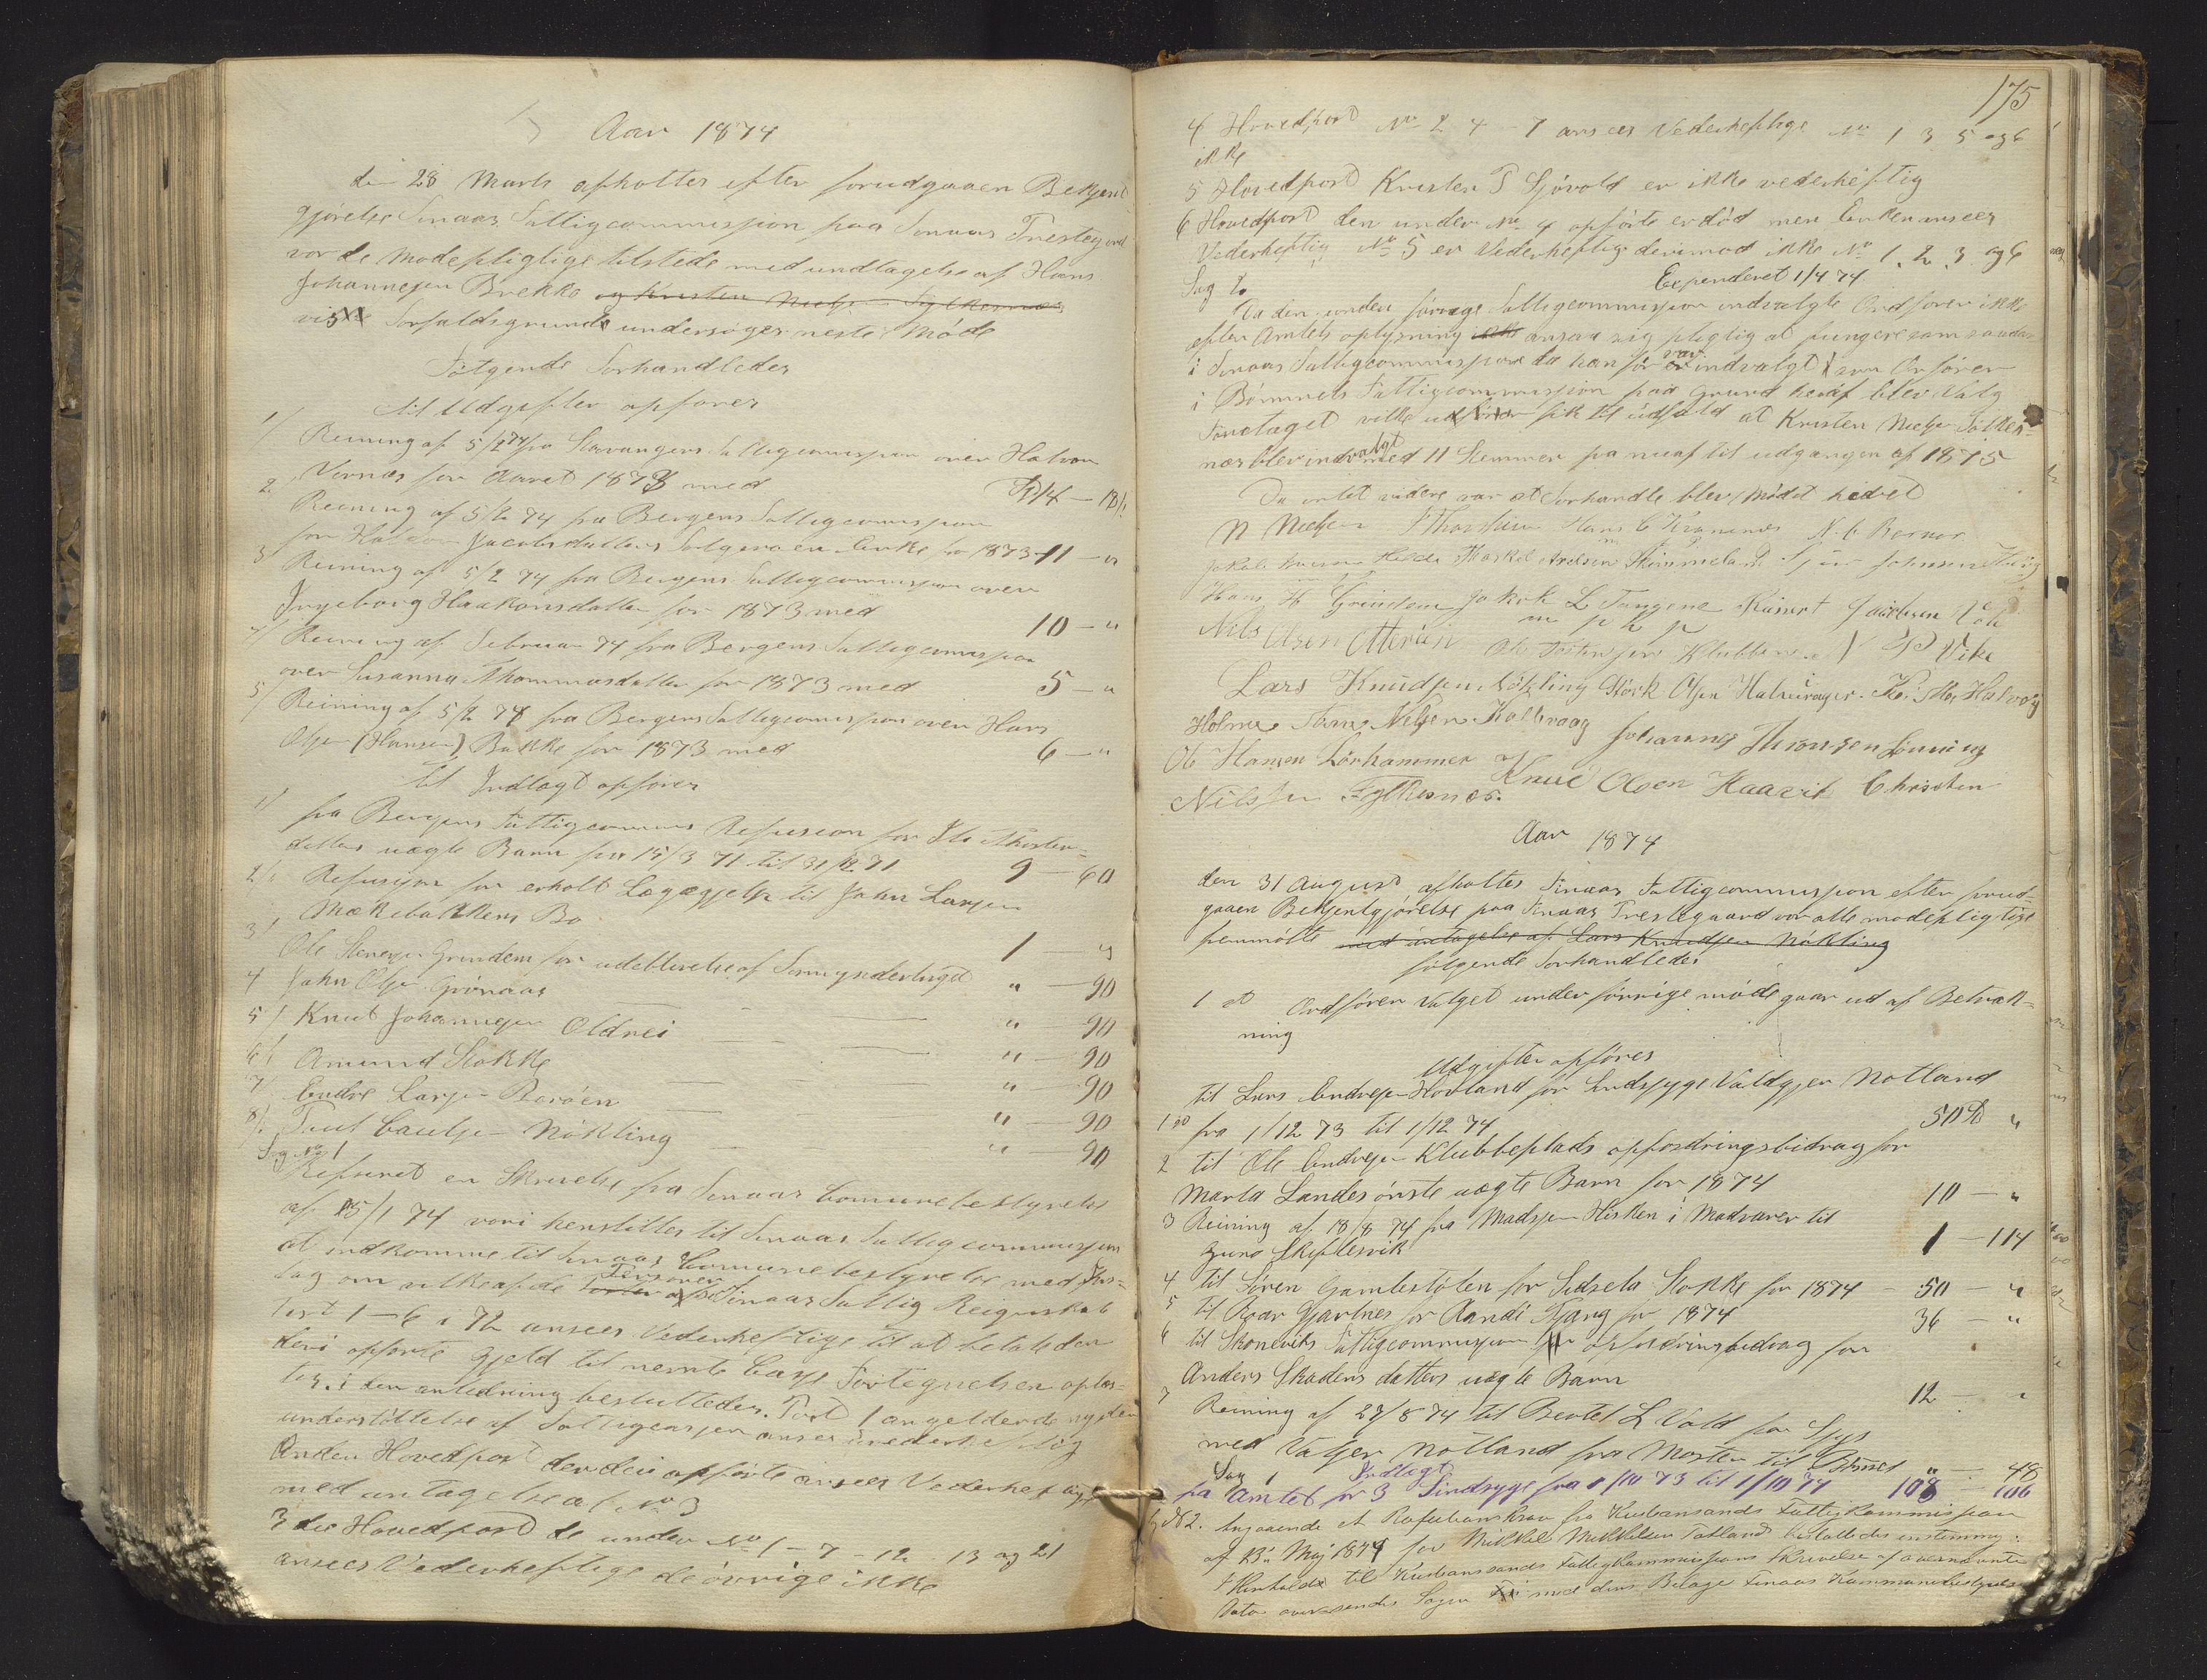 Aar 1874
den 28 Marts afholttes efter forudgaaen Bekjent
gjörelse Finaas Fattigcommissjon paa Finaas Prestegaard
var de mödepligtige tilstede med undtagelse af Hans
Johannesen Brekke og Kristen Nielsen Fylkesnæs
Forfaldsgrund undersöges neste Möde
Fölgende Forhandledes
til Udgifter opföres
1/ Reining af 5/2 74 fra Stavangers Fattigcomisjon over Halvor
Vernæs for Aaret 1873 med 14 — 18
2 Reining af 5/2 74 fra Bergens Fattigcomisjon
for Jacobsdatter Enke for 1873 11 — "
3 Reining af 5/2 74 fra Bergens Fattigcommisjon over
Ingeborg Haakonsdatter for 1873 med 10 — "
4/ Reining af Februar 74 fra Bergens Fattigcomisjon
over Susanna Thommasdatter for 1873 med 5 — "
5/ Reining af 5/2 74 fra Bergens Fattigcomisjon over Hans
Olsen (Hansen) Bakke for 1873 med 6 — "
til Indtægt opföres
1/ fra Bergens Fattigcommis Refusion for
datters uægte Barn fra 15/3 71 til 31/12 71 9 — 60
2/ Refusjon for erholt Lægegjelp til John Larsen
Mækebakkens Bo 1 — "
3/ Ole Stenersen Grindem for udeblivelse af Formynderlaget " — 90
4 John Olsen Grönaas " — 90
5/ Knut Johannesen Oldrei " — 90
6/ Amund Stokke " — 90
7/ Endre Larsen Baröen " — 90
8/ Nökling " — 90
Sag No 1
Referert en Skrivelse fra Finaas Comunebestyrelse
af 15/1 74 vori henstilles til Finaas Fattigcommisjon
at indkomme til Finaas Comunebestyrelse med Fors=
lag om vilke af de Personer i Finaas Fattig Reignskab
Post 1 — 6 i 72 ansees Vederheftige til at betale den
deri opförte Gjeld til nemte Casse Fortegnelsen oplæs=
tes. i den anledning besluttedes. Post 1 angeldende nyder
understöttelse af Fattigcassen ansees uvederheftig
Anden Hovedpost den deri opförte ansees Vederheftige
med untagelse af No 3
3die Hovedpost de under No 1 — 7 — 12 13 og 21
ansees Vederheftige de övrige ikke
175
4 Hovedpost No 2 4 — 7 ansees Vederheftige No 1 3 5 og 6
ikke
5 Hovedpost Kristen T Sjövold er ikke vederheftig
6 Hovedpost den under No 4 opförte er död men Enken ansees
Vederheftig No 5 er Vederheftig derimod ikke No 1. 2. 3 og 6
Expenderet 1/4 74
Sag 2
Da den under forrige Fattigcommisjon indvalgte Ordförer ikke
efter Amtets oplysning ansaa sig pligtig at fungere som saadan
i Finaas Fattigcommisjon da han för var indvalgt som Orförer
i Bömmels Fattigcommisjon paa Grund heraf blev Valg
Foretaget vilke fik til udfald at Kristen Nielsen Fölkes=
næs blev indvalgt med 11 Stemmer fra nu af til udgangen af 1875
Da intet videre var at Forhandle blev Mödet hævet
N Nielsen Thorstein Hans C Krannæs N. C. Barnor
Thorkel Arelsen Himmeland Johnsen
Hans H Grindem Jakob L Tangene Reinert Jacobsen
m p h p
Nils Olsen Otteröen Klubben. Vika
Lars Knudsen Nökling Störk Olsen
Holme Nilsen Kallevaag Johannes Thronsen Lönning
Ol Hansen Lörhammer Knud Olsen Kaarvik Christen
Nilssen Fylkesnæs.
Aar 1874
den 31 August afholttes Finaas Fattigcommisjon efter forud=
gaaen Bekjentgjörelse paa Finaas Prestegaard var alle mödepligtige
fremmötte med undtagelse af Lars Knudsen Nökling
fölgende Forhandledes
1 at Ordförer Valget under forrige möde gaar ud af Betrakt=
ning
Udgifter opföres
til Lars Endresen Hovland for Sindssyge Valdgjer Notland
1 fra 1/12 73 til 1/12 74 50 "
2 til Ole Endresen Klubbeplads opfostringsbidrag for
Marta Landesönste uægte Barn for 1874 10 — "
3 Reining af 18/8 74 fra Madsen Hisken i Madvarer til
Guro Skiftesvik 1 — 114
4 til Sören Gamlestölen for Sidsela Stokke for 1874 — 50 — "
5 til Roar Gjertnes for Randi Tjang for 1874 36 — "
6 til Skonevikes Fattigcommisjon opfostringsbidrag for
Anders Skadens datters uægte Barn 12 — "
7 Reining af 29/8 74 til Bertel L Vold for Skyds
med Valgjer Notland fra Mosten til " — 48
Sag 1 Indtægt
fra Amtet for 3 Sindsyge fra 1/10 73 til 1/10 74 108 106
No 2. Angaaende et Refusionskrav fra Kristiansands Fattigkommission
af 13de Maj 1874 for Mikkel Mikkelsen Totland besluttedes enstemmig:
I Henhold til Kristianssands Fattigkommissions Skrivelse af ovennævnte
Dato oversendes Sagen med dens Bilage Finaas Kommunebestyrelse